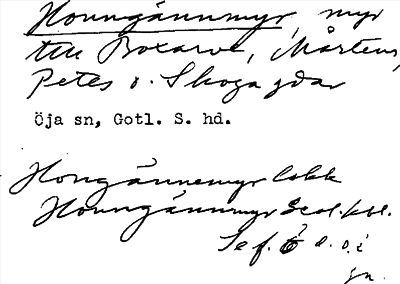 Honngännmyr, myr
till Boxarve, Mårtens,
Petes o. Skoga gdar
Öja sn, Gotl. S. hd.
Hongännemyr lokk
Honngännmyr
Se f.